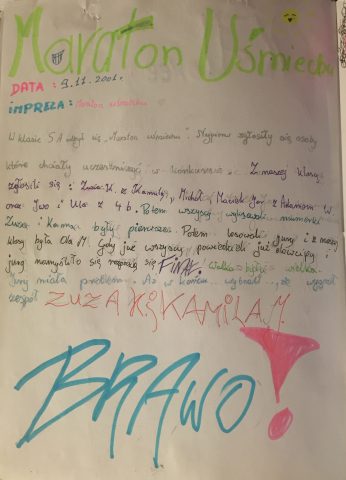 Maraton Uśmiechu
DATA : 9.11.2001r.
IMPREZA : Maraton uśmiechu
W klasie 5A odbył się „Maraton uśmiechu". zgłosiły się osoby
które chciały uczestniczyć w konkursie. Z naszej klasy
zgłosili się : Zuzia K. z Kamilą, Michał i Maciek, Jaś z Adamem W.
oraz Iwo i Ula z 4b. Potem wszyscy numerki.
Zuzia i Kamila były pierwsze. Potem losowali jury i z naszej
klasy była Ola M. Gdy już wszyscy powiedzieli już i
jury namyśliło się rozpoczął się FINAŁ. Walka była wielka.
Jury miała problem. Aż w końcu wybrało, że wygrał
zespół
ZUZA K & KAMILA M.
BRAWO!